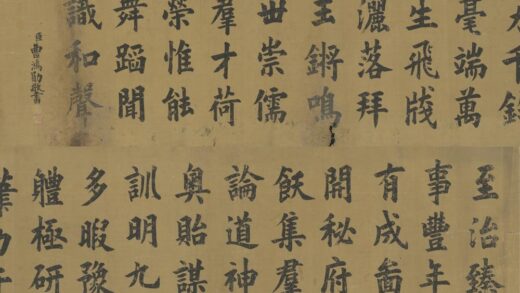 千
毫端萬
生飛牋
灑落拜
玉鏘鳴
世崇儒
羣才荷
榮惟能
舞蹈聞
識和聲
臣曹鴻勛敬書
至治臻
事豐年
有成啚
開秘府
飫集羣
論道神
奧貽謀
訓明九
多暇豫
體極研